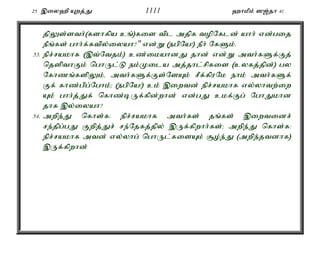 25 இலைஹி யுறத்து 1111 ஹாமீம் ஸஜ்தா 41
திலுள்ளவர்(களாகிய உங்)களை விட அதிக வழிகேடன் யார் என்பதை
நீங்கள் பார்க்கவில்லையா?" என்று (நபியே!) நீர் கேளும்.
53. நிச்சயமாக (இவ்வேதம்) உண்மையானது தான் என்று அவர்களுக்குத்
தெளிவாகும் பொருட்டு நம்முடைய அத்தாட்சிகளை (உலகத்தின்) பல
கோணங்களிலும், அவர்களுக்குள்ளேயும் சீக்கிரமே நாம் அவர்களுக்
குக் காண்பிப்போம்; (நபியே!) உம் இறைவன் நிச்சயமாக எல்லாவற்றை
யும் பார்த்துக் கொண்டிருக்கின்றான் என்பது உமக்குப் போதுமான
தாக இல்லையா?
54. அறிந்து கொள்க: நிச்சயமாக அவர்கள் தங்கள் இறைவனைச்
சந்திப்பது குறித்துச் சந்தேகத்தில் இருக்கிறார்கள்; அறிந்து கொள்க:
நிச்சயமாக அவன் எல்லாப் பொருட்களையும் சூழ்ந்து (அறிந்தவனாக)
இருக்கிறான்